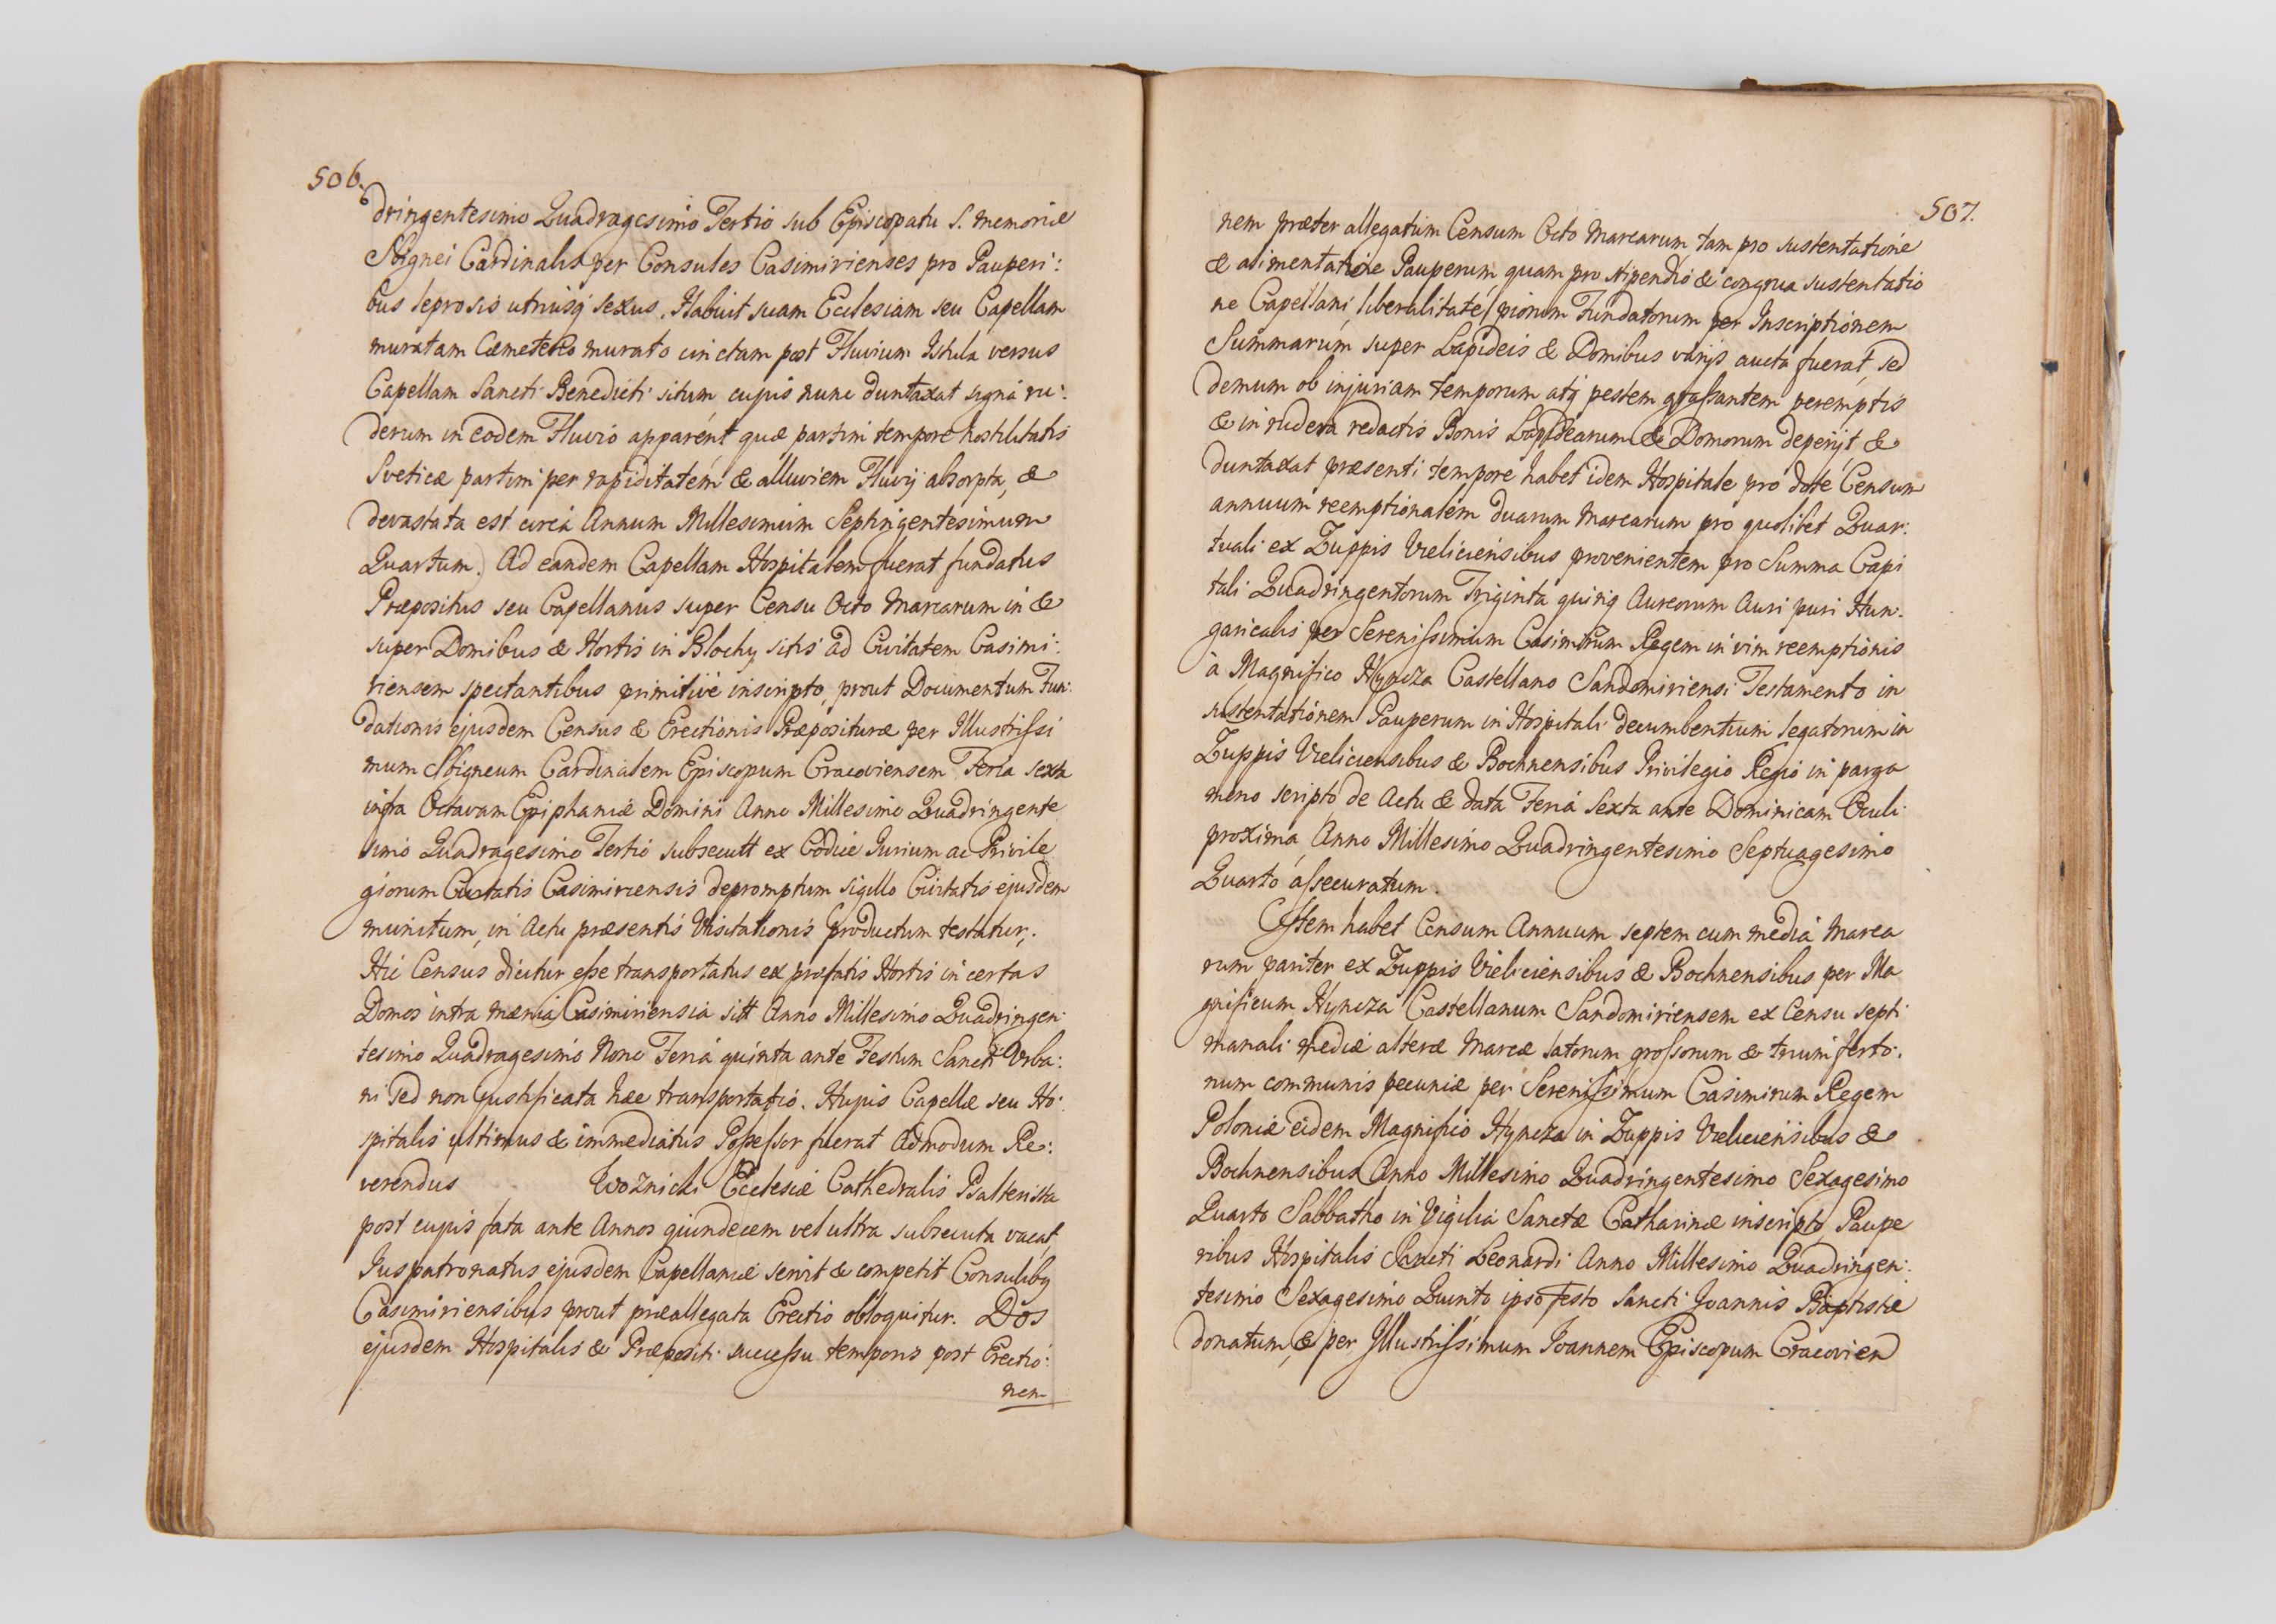 506.
dringentesimo Quadragesimo Tertio sub Episcopatu S. memoriæ
Sbignei Cardinalis per Consules Casimirienses pro Pauperi:
bus leprosis utriusq sexus. Habuit suam Ecclesiam seu Capellam
muratam Cæmeterio murato cinctam post Fluvium Istula versus
Capellam Sancti Benedicti sitam, cujus nunc duntaxat signa ru:
derum in eodem Fluvio apparent, quæ partim tempore hostilitatis
Sveticæ partim per rapiditatem & alluviem Fluvij absorpta, &
devastata est circa Annum Millesimum Septingentesimum
Quartum. Ad eandem Capellam Hospitalem fuerat fundatus
Præpositus seu Capellanus super Censu Octo Marcarum in &
super Domibus & Hortis in Blochy sitis ad Civitatem Casimi:
riensem spectantibus primitive inscripto, prout Documentum Fun:
dationis ejusdem Census & Erectionis Præpositura per Illustrissi
mum Sbigneum Cardinalem Episcopum Cracoviensem Feria sexta
infra Octavam Epiphaniæ Domini Anno Millesimo Quadringente
simo Quadragesimo Tertio subsecutt ex Codice Iurium ac Privile
giorum Civitatis Casimiriensis depromptum sigillo Civitatis ejusdem
munitum, in Actu præsentis Visitationis productum testatur.
Hic Census dicitur esse transportatus ex præfatis Hortis in certas
Domos intra mænia Casimiriensia sitt Anno Millesimo Quadringen:
tesimo Quadragesimo Nono Feria quinta ante Festum Sancti Urba:
ni sed non justificata hæc transportatio. Hujus Capellæ seu Ho:
spitalis ultimus & immediatus Possessor fuerat Admodum Re:
verendus Woznicki Ecclesiæ Cathedralis Psalterista
post cujus fata ante Annos quindecem vel ultra subsecuta vacat,
Juspatronatus ejusdem Capellaniæ servit & competit Consulibq
Casimiriensibus prout præallegata Erectio obloquitur. Dos
ejusdem Hospitalis & Præpositi successu temporis post Erectio:
nem
507.
nem præter allegatum Censum Octo Marcarum, tam pro sustentatione
& alimentatione Pauperum, quam pro stipendio & congrua sustentatio
ne Capellani, liberalitate piorum Fundatorum per Inscriptionem
Summarum super Lapideis & Domibus varijs aucta fuerat, sed
demum ob injuriam temporum atq pestem grassantem peremptis
& in rudera redactis Bonis Lapidearum & Domorum deperijt &
duntaxat præsenti tempore habet idem Hospitale pro dote Censum
annuum reemptionalem duarum Marcarum pro quolibet Quar:
tuali ex Zuppis Vieliciensibus provenientem pro Summa Capi
tali Quadringentorum Triginta quinq Aureorum Auri puri Hun:
garicalis per Serenissimum Casimirum Regem in vim reemptionis
à Magnifico Hyncza Castellano Sandomiriensi Testamento in
sustentationem Pauperum in Hospitali decumbentium legatorum in
Zuppis Vieliciensibus & Bochnensibus Privilegio Regio in parga
meno scripto de Actu & data Feria Sexta ante Dominicam Oculi
proxima, Anno Millesimo Quadringentesimo Septuagesimo
Quarto assecuratum.
Item habet Censum Annuum septem cum media Marca
rum pariter ex Zuppis Vieliciensibus & Bochnensibus per Ma
gnificum Hyncza Castellanum Sandomiriensem ex Censu septi
manali mediæ alteræ Marcæ latorum grossorum & trium ferto:
num communis pecuniæ per Serenissimum Casimirum Regem
Poloniæ eidem Magnifico Hyncza in Zuppis Vieliciensibus &
Bochnensibus Anno Millesimo Quadringentesimo Sexagesimo
Quarto Sabbatho in Vigilia Sanctæ Catharinæ inscripto, Paupe
ribus Hospitalis Sancti Leonardi Anno Millesimo Quadringen:
tesimo Sexagesimo Quinto ipso festo Sancti Joannis Baptistæ
donatum, & per Illustrissimum Ioannem Episcopum Cracovien